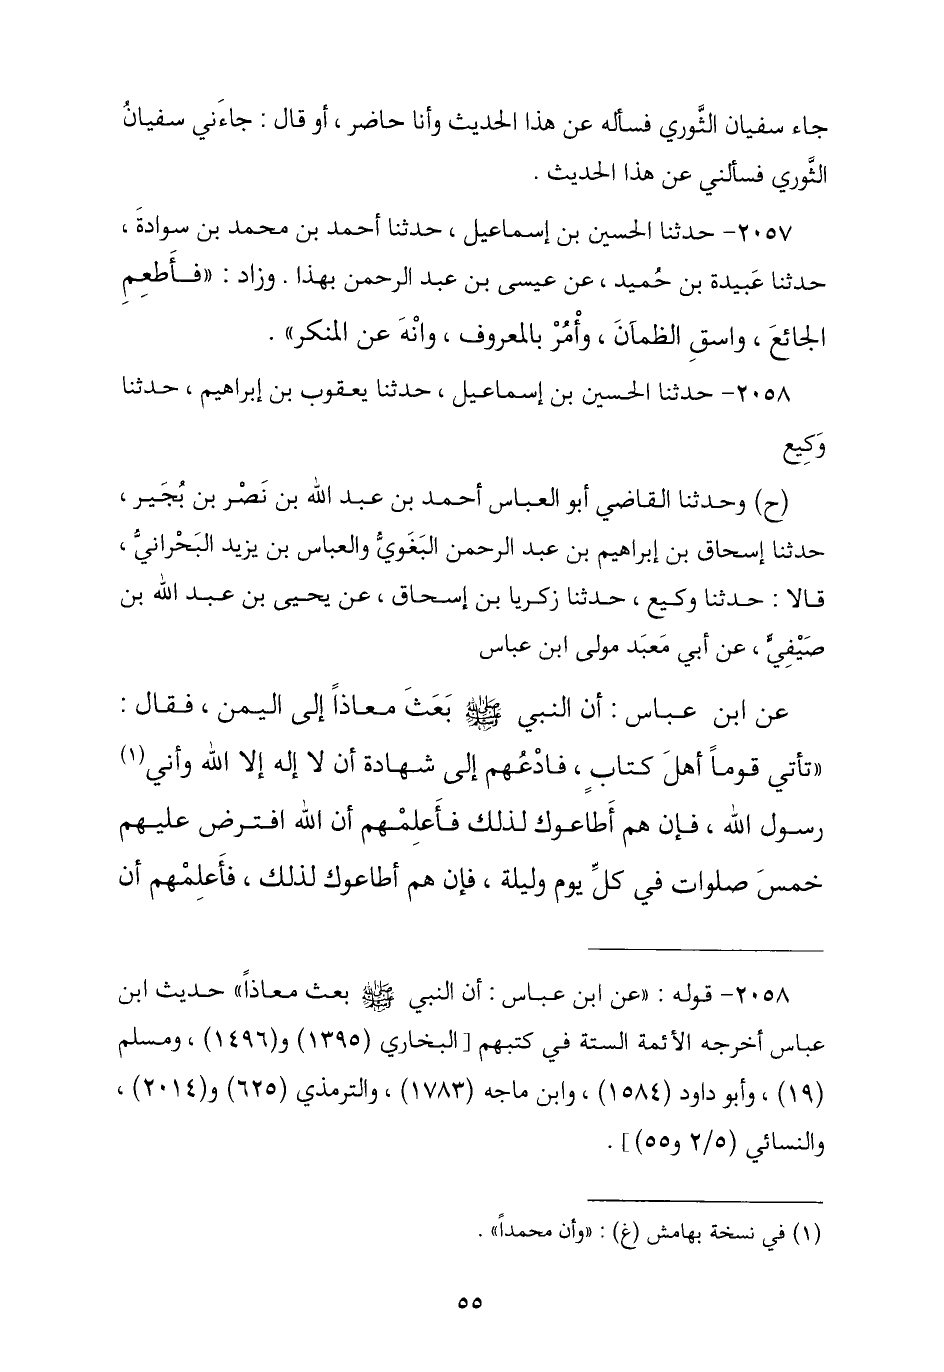 جاء سفيان الثَّوري فسأله عن هذا الحديث وأنا حاضر ، أو قال : جاءَني سفيانُ
الثَّوري فسألني عن هذا الحديث .
٢٠٥٧- حدثنا الحسين بن إسماعيل ، حدثنا أحمد بن محمد بن سوادةَ ،
حدثنا عَبيدة بن حُميد ، عن عيسى بن عبد الرحمن بهذا . وزاد : «فأَطعِمِ
الجائعَ ، واسقِ الظمآنَ ، وأْمُرْ بالمعروف ، وانْهَ عن المنكر» .
٢٠٥٨- حدثنا الحسين بن إسماعيل ، حدثنا يعقوب بن إبراهيم ، حدثنا
وَكِيع
(ح) وحدثنا القاضي أبو العباس أحمد بن عبد الله بن نَصْر بن بُجَير ،
حدثنا إسحاق بن إبراهيم بن عبد الرحمن البَغَويُّ والعباس بن يزيد البَحْرانيُّ ،
قالا : حدثنا وكيع ، حدثنا زكريا بن إسحاق ، عن يحيى بن عبد الله بن
صَيْفِيٍّ ، عن أبي مَعبَد مولى ابن عباس
عن ابن عباس : أن النبي ﷺ بَعَثَ معاذاً إلى اليمن ، فقال :
«تأتي قوماً أهلَ كتابٍ ، فادْعُهم إلى شهادة أن لا إله إلا الله وأني(١)
رسول الله ، فإن هم أَطاعوك لذلك فأَعلِمْهم أن الله افترض عليهم
خمسَ صلوات في كلِّ يوم وليلة ، فإن هم أطاعوك لذلك ، فأَعلِمْهم أن
٢٠٥٨- قوله : «عن ابن عباس : أن النبي ﷺ بعث معاذاً» حديث ابن
عباس أخرجه الأئمة الستة في كتبهم [البخاري (١٣٩٥) و(١٤٩٦) ، ومسلم
(١٩) ، وأبو داود (١٥٨٤) ، وابن ماجه (١٧٨٣) ، والترمذي (٦٢٥) و(٢٠١٤) ،
والنسائي (٢/٥ و٥٥)] .
(١) في نسخة بهامش (غ) : «وأن محمداً» .
٥٥